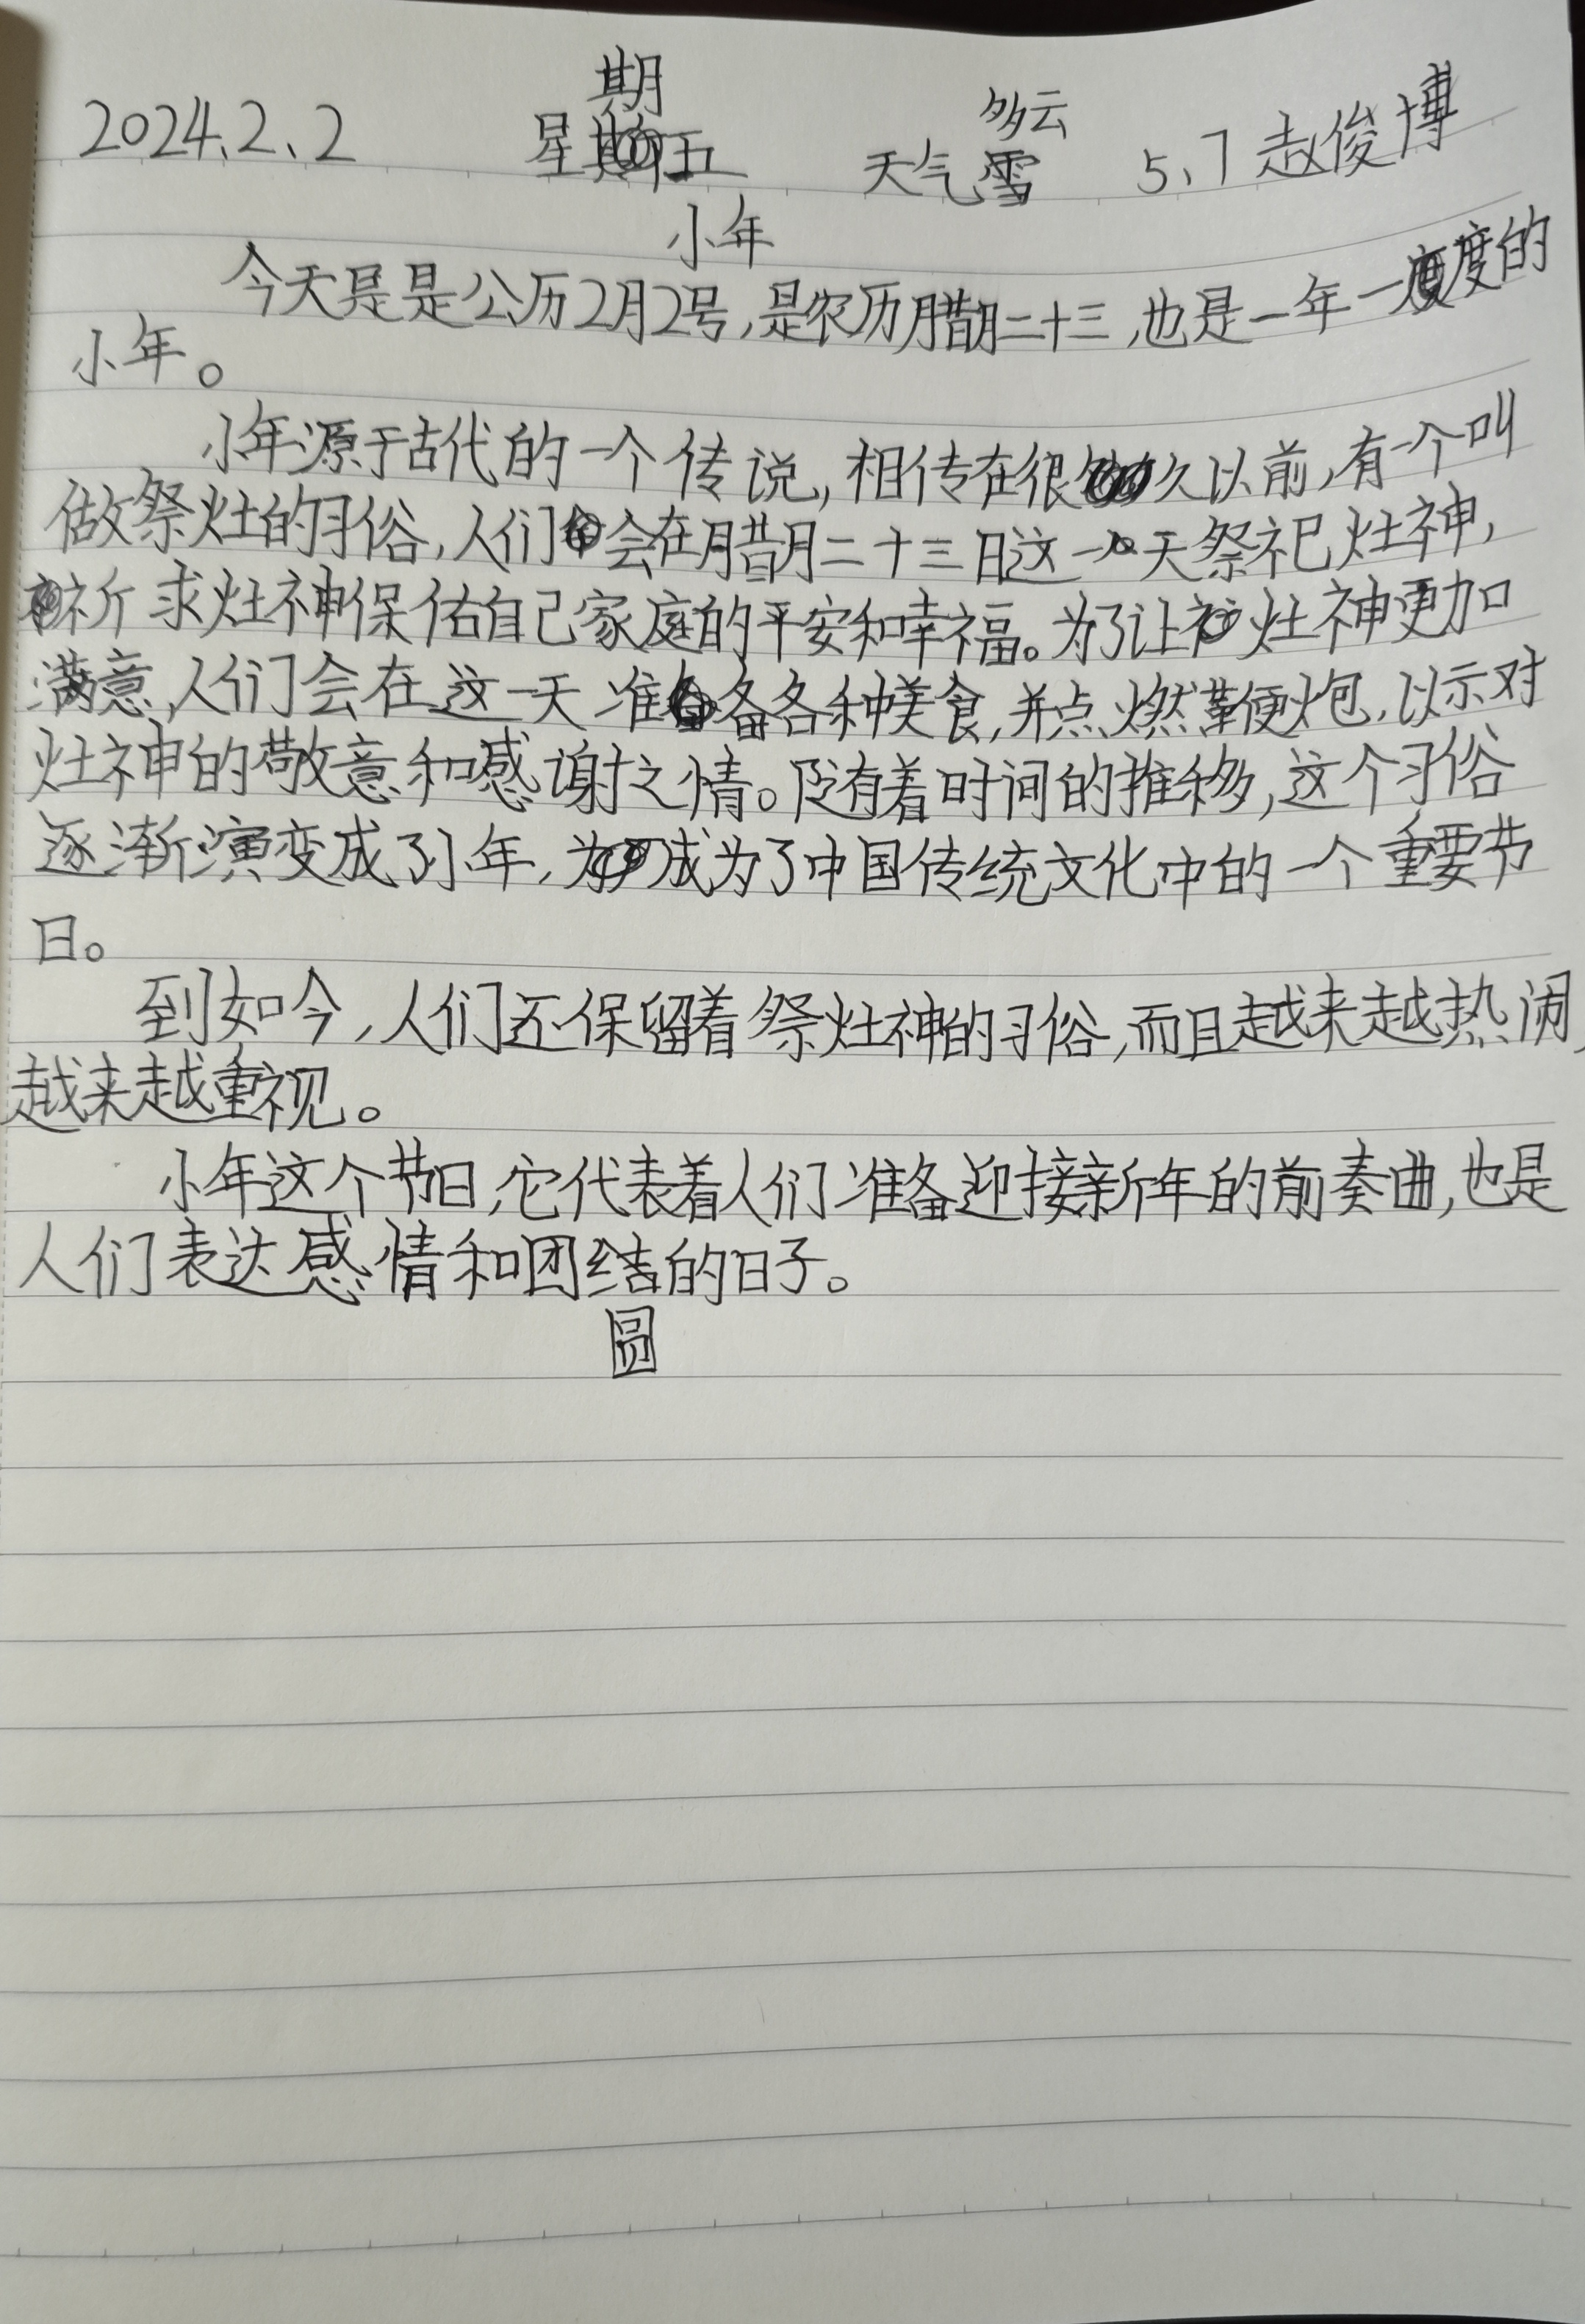 期
2024.2.2 星期五 天气雪 多云 5.7 赵俊博
小年
今天是是公历2月2号,是农历腊月二十三,也是一年一度的
小年。
小年源于古代的一个传说,相传在很久以前,有一个叫
做祭灶的习俗,人们会在腊月二十三日这一天祭祀灶神,
祈求灶神保佑自己家庭的平安和幸福。为了让灶神更加
满意,人们会在这一天准备各种美食,并点燃鞭炮,以示对
灶神的敬意和感谢之情。随着时间的推移,这个习俗
逐渐演变成了小年,成为了中国传统文化中的一个重要节
日。
到如今,人们还保留着祭灶神的习俗,而且越来越热闹,
越来越重视。
小年这个节日,它代表着人们准备迎接新年的前奏曲,也是
人们表达感情和团结的日子。
圆